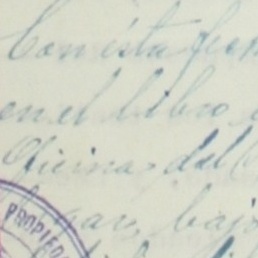 Con ésta fe
en el Libro
Oficina del
lugar, bajo
PROPIED